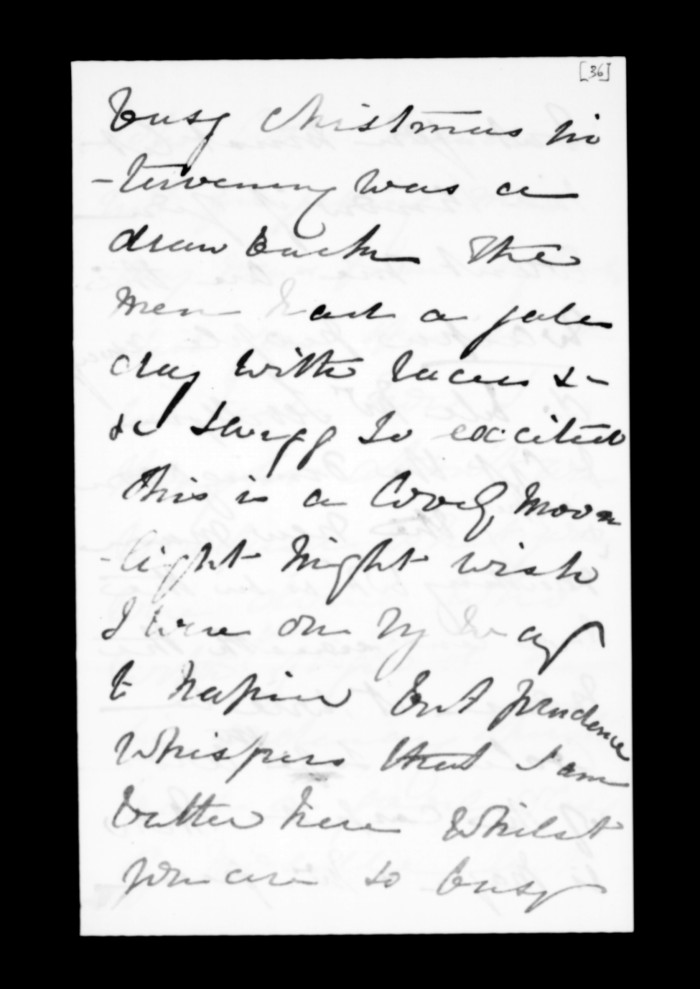 [36]
busy Christmas in
-tervening was a
draw back The
men had a gala
day with races &
so excited
this is a lovely moon
-light night wish
I were on my way
to Napier but prudence
whispers that I am
better here whilst
you are so busy